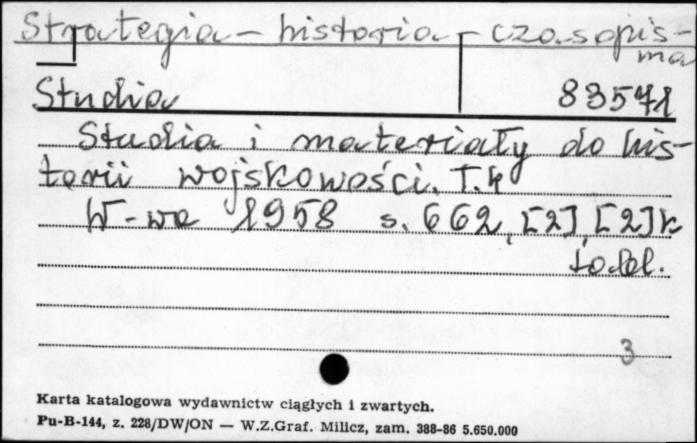 Strategia - historia - czasopis-
ma
Studia 83571
Studia i materiały do his-
torii wojskowości. T. 4
W-wa 1958 s. 662, [2], [2] k
tabl.
3
Karta katalogowa wydawnictw ciągłych i zwartych.
Pu-B-144, z. 228/DW/ON — W.Z.Graf. Milicz, zam. 388-86 5.650.000